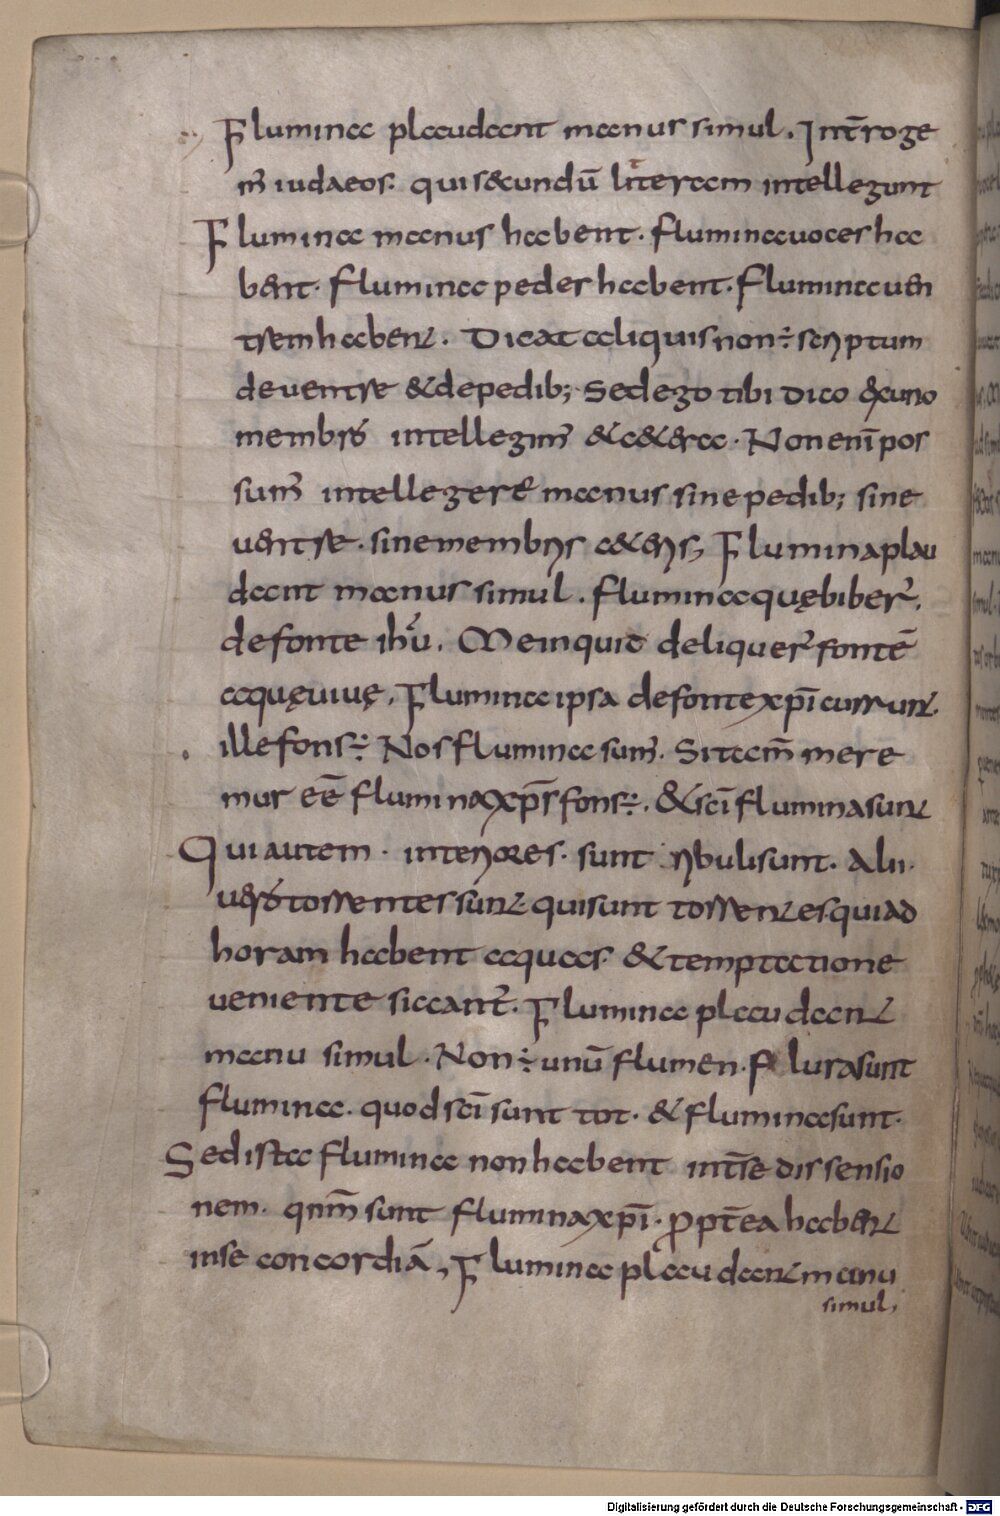 Flumina plaudent manus simul. Intēroge
m̄ iudaeos. qui s&cundū litteram intellegunt
Flumina manus habent. flumina uoces ha
bent. flumina pedes habent. flumina uen
trem habent. Dicat aliquis non ÷ scriptum
de uentre & de pedib; Sed ego tibi dico ex uno
membro intellegim̄ & c&era. Non enī pos
sum̄ intellegere manus sine pedib; sine
uentre. sine membris c&eris, Flumina plau
dent manus simul. flumina quę biber̄.
de fonte ihū. Me inquid deliquer̄ fontē
aquę uiuę. Flumina ipsa de fonte xp̄i currunt.
ille fons ÷ Nos flumina sum̄. Si tam̄ mere
mur eē flumina xp̄s fons ÷. & sc̄i flumina sunt
Qui autem. interiores. sunt ribuli sunt. Alii.
uero torrentes sunt. qui sunt torrentes qui ad
horam habent aquas. & temptatione
ueniente siccant̄. Flumina plaudent
manu simul. Non ÷ unū flumen. Plura sunt
flumina. quod sc̄i sunt tot. & flumina sunt.
Sed ista flumina non habent int̄ se dissensio
nem. qn̄m sunt flumina xp̄i. ꝓpt̄ea habent
in se concordiā, Flumina plaudent manu
simul,
Digitalisierung gefördert durch die Deutsche Forschungsgemeinschaft - DFG